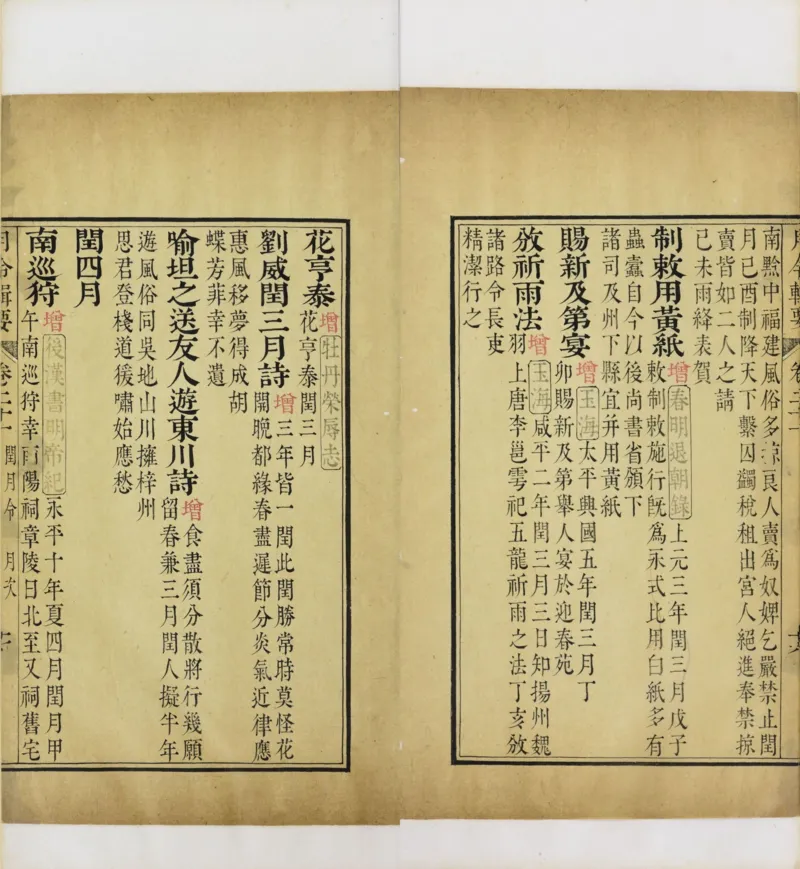 南黔中福建風俗多掠良人賣爲奴婢乞嚴禁止閏
月己酉制降天下繫囚蠲稅租出宮人絕進奉禁掠
賣皆如二人之請
己未雨絳表賀
制敕用黃紙增春明退朝錄上元三年閏三月戊子
敕制敕施行旣爲永式比用白紙多有
蟲蠹自今以後尚書省頒下
諸司及州下縣宜并用黃紙
賜新及第宴增玉海太平興國五年閏三月丁
卯賜新及第舉人宴於迎春苑
攽祈雨法增玉海咸平二年閏三月三日知揚州魏
羽上唐李邕雩祀五龍祈雨之法丁亥攽
諸路令長吏
精潔行之
花亨泰增牡丹榮辱志
花亨泰閏三月
劉威閏三月詩增三年皆一閏此閏勝常時莫怪花
開晚都綠春盡遲節分炎氣近律應
惠風移夢得成胡
蝶芳菲幸不遺
喻坦之送友人遊東川詩增食盡須分散將行幾願
留春兼三月閏人擬半年
遊風俗同吳地山川擁梓州
思君登棧道猨嘯始應愁
閏四月
南巡狩增後漢書明帝紀永平十年夏四月閏月甲
午南巡狩幸南陽祠章陵日北至又祠舊宅
月令輯要 卷二十一 閏月令 月次